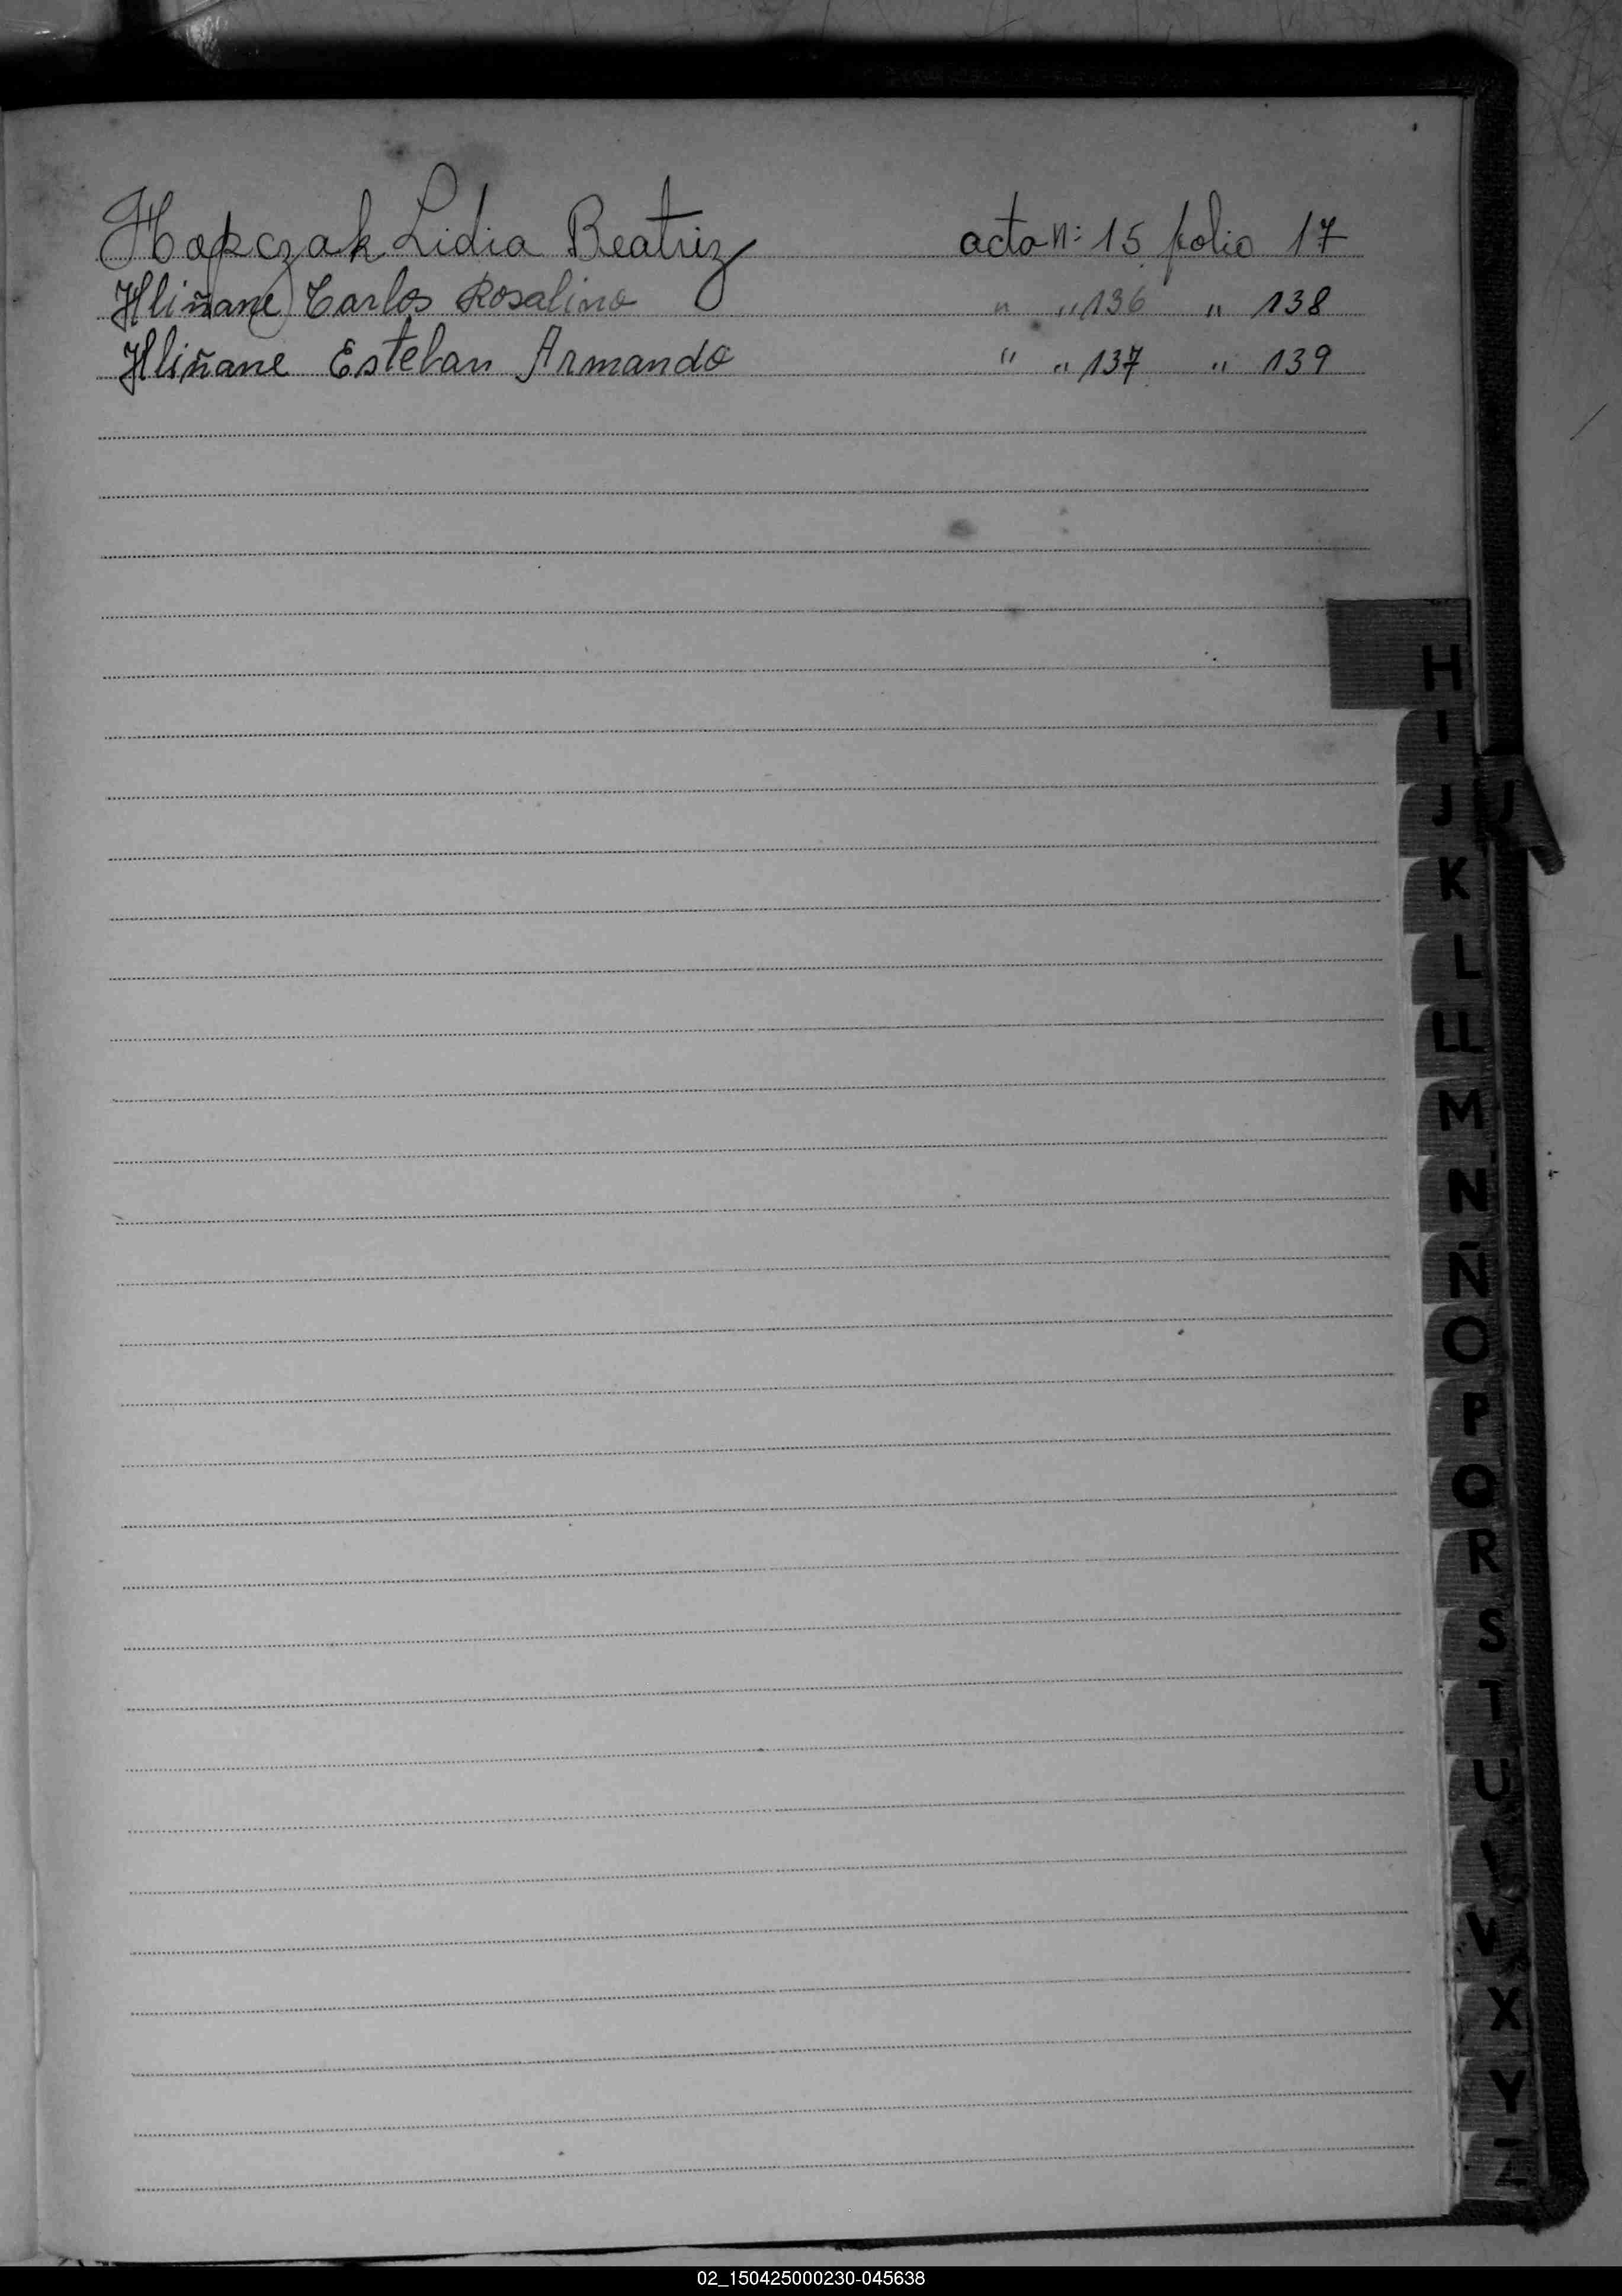 Hapczak Lidia Beatriz acta n: 15 folio 17
Hliñane Carlos Rosalino " " 136 " 138
Hliñane Esteban Armando " " 137 " 139
H
I
J U
K
L
LL
M
N
Ñ
O
P
Q
R
S
T
U
V
X
Y
Z
02_150425000230-045638